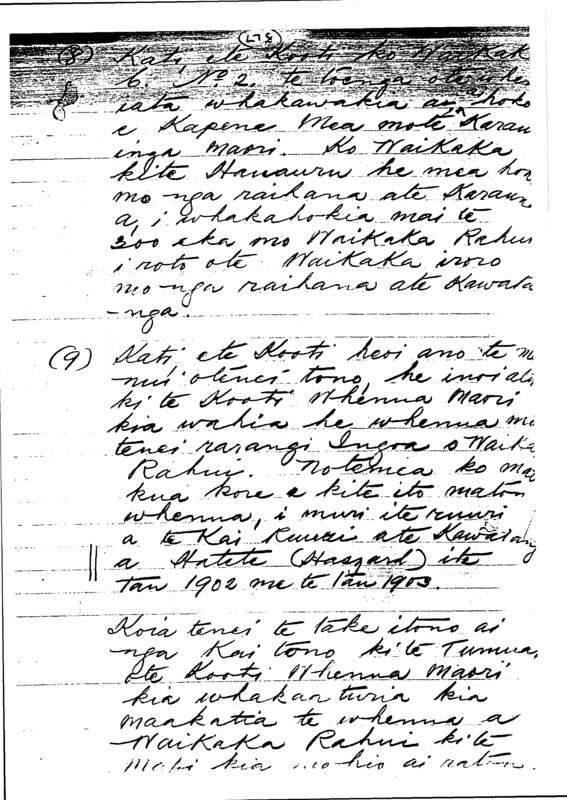 (8) Kati, ete Kooti ko Waikak
6. No 2. te toenga ote
iata whakawakia ai, a hoko
e Kapene Mea mote Karau
inga Maori. Ko Waikaka
kite Hauauru he mea hoa
mo nga raihana ate Karauna
a, i whakahokia mai te
300 eka mo Waikaka Rahui
i roto ote Waikaka
mo nga raihana ate Kawata
-nga.
(9) Kati, ete Kooti heoi ano te
otenei tono, he inoi atu
ki te Kooti Whenua Maori
kia wahia he whenua mo
tenei rarangi Ingoa o Waika
Rahui. Notemea ko ma
kua kore e kite ito maton
whenua, i muri ite ruuri
a te Kai Ruuri ate Kawatang
a Hatete (Haszard) ite
Tau 1902 me te Tau 1903.
Koia tenei te take itono ai
nga Kai tono kite Tumua,
ote Kooti Whenua Maori
kia whakaaturia kia
maakatia te whenua a
Waikaka Rahui kite
Mapi kia mohio ai raton.